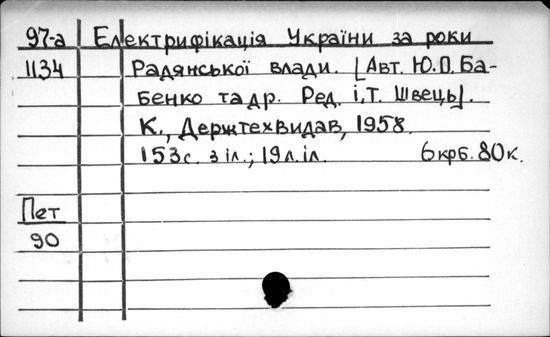 97-а Електрифікація України за роки
1134 Радянської влади. [Авт. Ю.О. Ба-
бенко та др. Ред. і.Т. Швець].
К., Держтехвидав, 1958.
153с. з іл.; 19л.іл. 6крб. 80к.
Пет
90